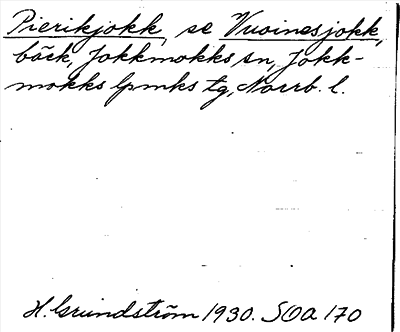 Pierikjokk, se Vuoinesjokk,
bäck, Jokkmokks sn, Jokk-
mokks lpmks tg, Norrb. l.
H. Grundström 1930. SOA 170